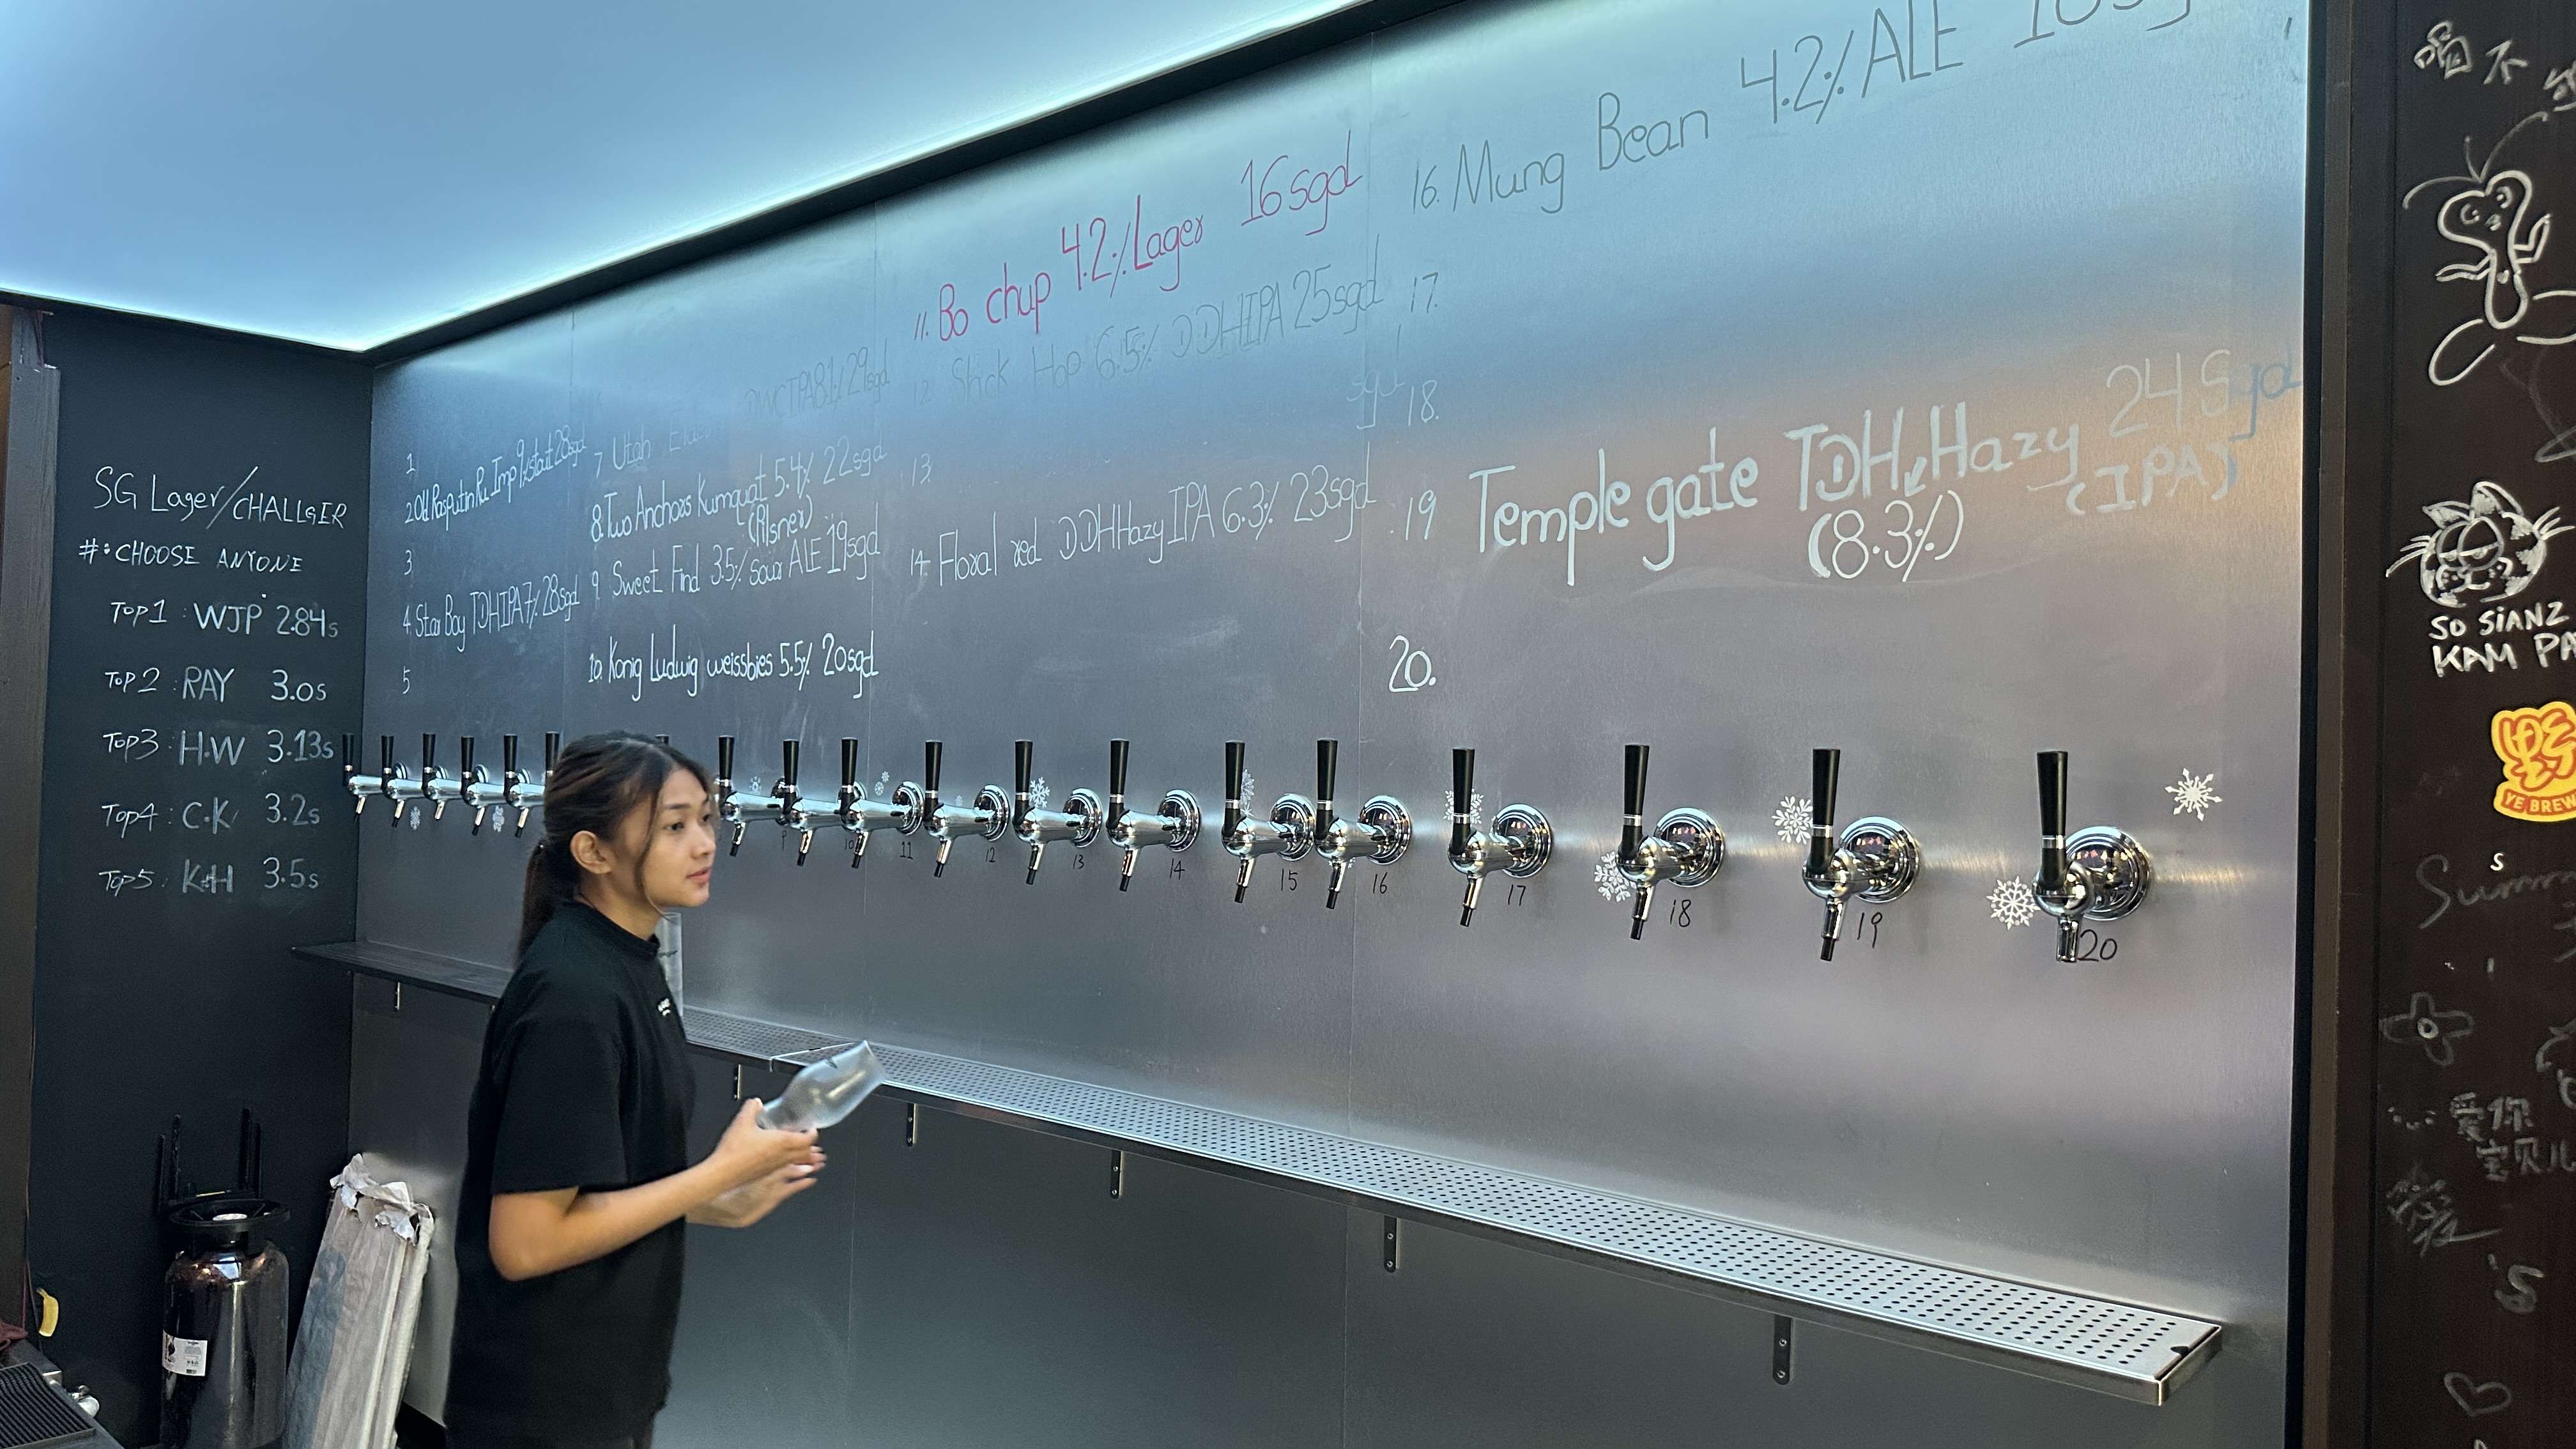 SG Lager/CHALLGER
#: CHOOSE ANYONE
Top1 : WJP 2.84s
Top2 : RAY 3.0s
Top3 : H.W 3.13s
Top4 : C.K 3.2s
Top5 : K.H 3.5s
1
2 Old Rasputin Ru Imp 9% stout 28sgd
3
4. Star Boy TDHIPA 7% 28sgd
5
7 Utah DWCIPA 8.1% 29sgd
8. Two Anchors Kumquat 5.4% 22sgd
(Pilsner)
9. Sweet Find 3.5% sour ALE 19sgd
10. Konig Ludwig weissbies 5.5% 20sgd
11. Bo chup 4.2% Lager 16sgd
12. Stick Hop 6.5% DDHIPA 25sgd
sgd
13.
14. Floral red DDH Hazy IPA 6.3% 23sgd
16. Mung Bean 4.2% ALE
17.
18.
19 Temple gate TDH Hazy 24 Sgd
(8.3%) (IPA)
20.
9
10
11
12
13
14
15
16
17
18
19
20
喝不
SO SiANZ
KAM PA
野
YE BREW
s
Summ
爱你
宝贝儿
's